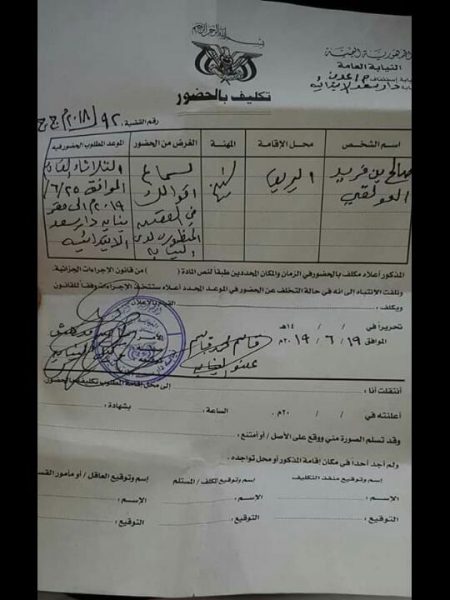 بسم الله الرحمن الرحيم
الجمهورية اليمنية
النيابة العامة
نيابة استئناف م/عدن
نيابة دار سعد الابتدائية
تكليف بالحضور
رقم القضية: ٩٢ / ٢٠١٨م ج ج
اسم الشخص
محل الإقامة
المهنة
الغرض من الحضور
الموعد المطلوب الحضور فيه
صالح بن فريد
العولقي
لسماع
اقوالك
في القضية
المنظورة لدى
النيابة
الثلاثاء القادم
الموافق ٦/٢٥/
٢٠١٩م الى مقر
نيابة دار سعد
الابتدائية
المذكور أعلاه مكلف بالحضور في الزمان والمكان المحددين طبقا لنص المادة ( ) من قانون الإجراءات الجزائية.
ونلفت الانتباه إلى انه في حالة التخلف عن الحضور في الموعد المحدد أعلاه ستتخذ الإجراءات وفقا للقانون
ويكلف . القيام بالإعلان
تحريرا في / / ١٤هـ
الموافق ١٩ / ٦ / ٢٠١٩م
قاسم
عضو النيابة
أنتقلت أنا : إلى محل إقامة المطلوب تكليفه بالحضور
أعلنته في / / ٢٠م الساعة : بشهادة :
وقد تسلم الصورة مني ووقع على الأصل / أو أمتنع .
ولم أجد أحدا في مكان إقامة المذكور أو محل تواجده .
إسم وتوقيع منفذ التكليف
إسم وتوقيع المكلف / المستلم
إسم وتوقيع العاقل / أو مأمور القسم
الاسم :
الإسم :
الإسم :
التوقيع :
التوقيع :
التوقيع :